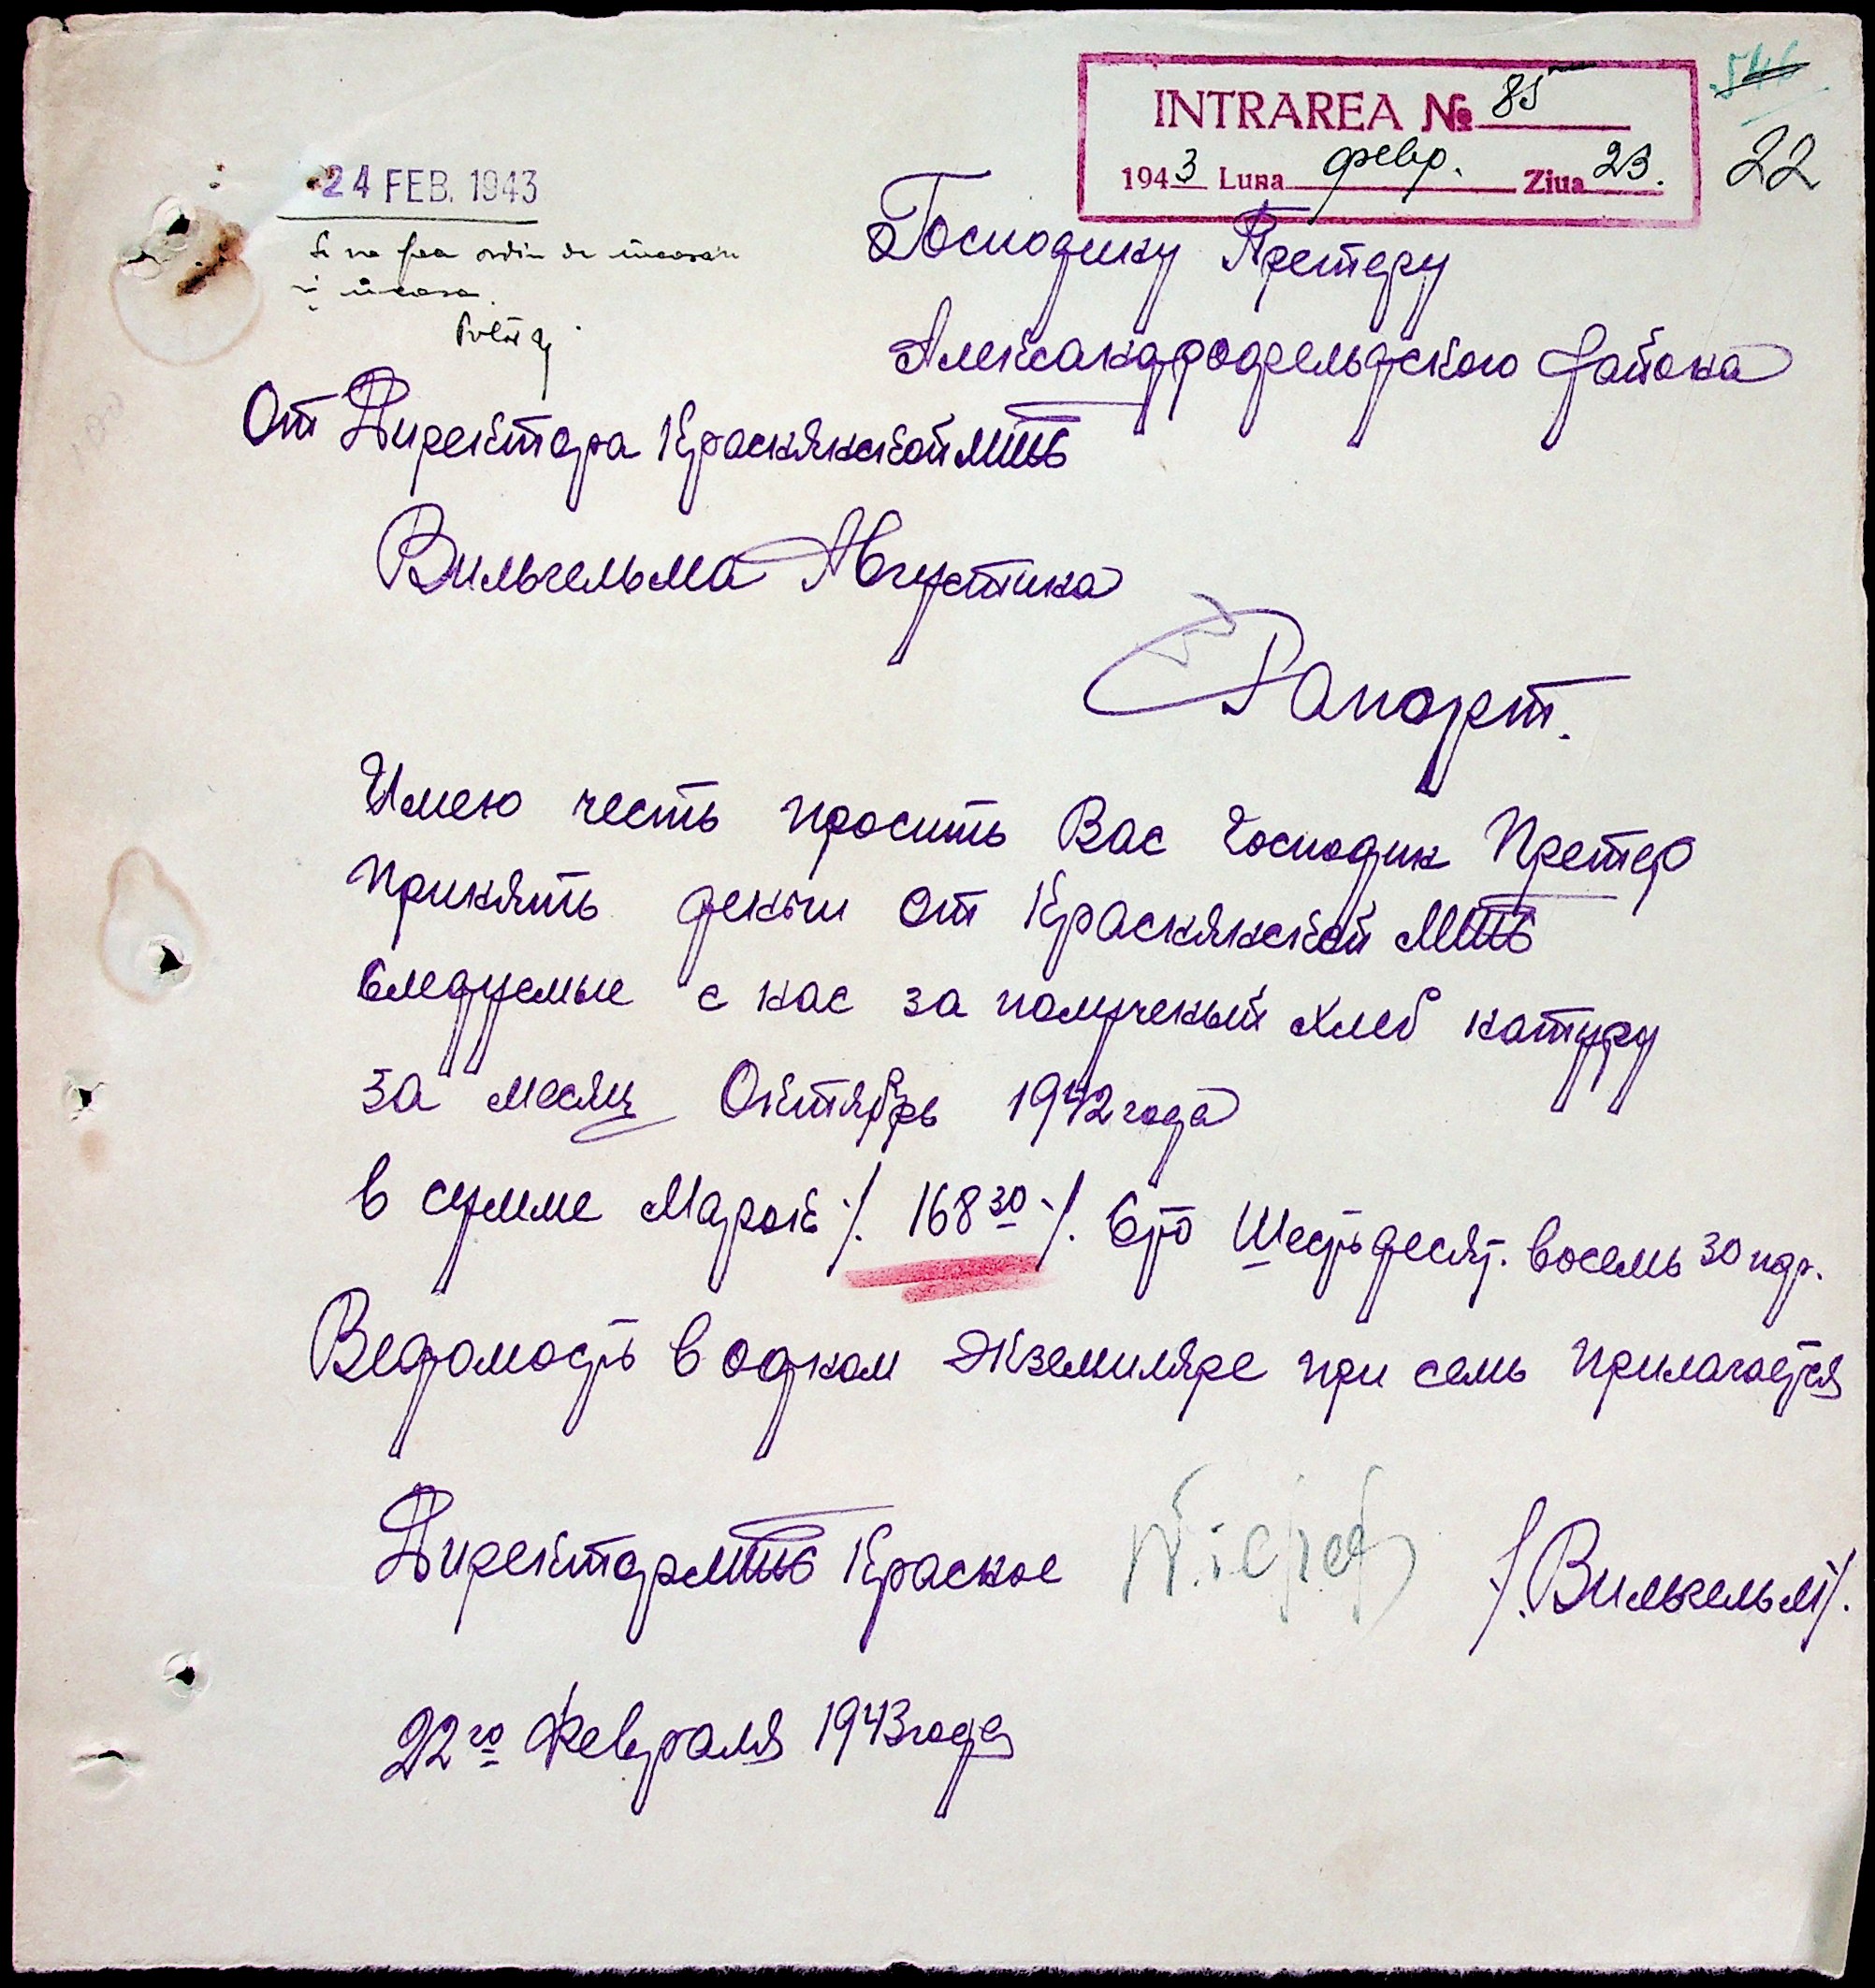 INTRAREA № 85
1943 Luna февр. Ziua 23.
546
22
24 FEB. 1943
Se va face ordin de încasare
și încasa.
Господину Претору
Александрфельдского района
От Директора Краснянской МТС
Вильгельма Августина
Рапорт.
Имею честь просить Вас Господин Претор
принять деньги от Краснянской МТС
следуемые с нас за полученый хлеб натуру
за месяц Октябрь 1942 года
в сумме Марок /. 168 30 /. Сто Шестьдесят. восемь 30 пф.
Ведомость в одном экземпляре при семь прилагается
Директор МТС Красное
/. Вильгельм /.
22 го Февраля 1943 года